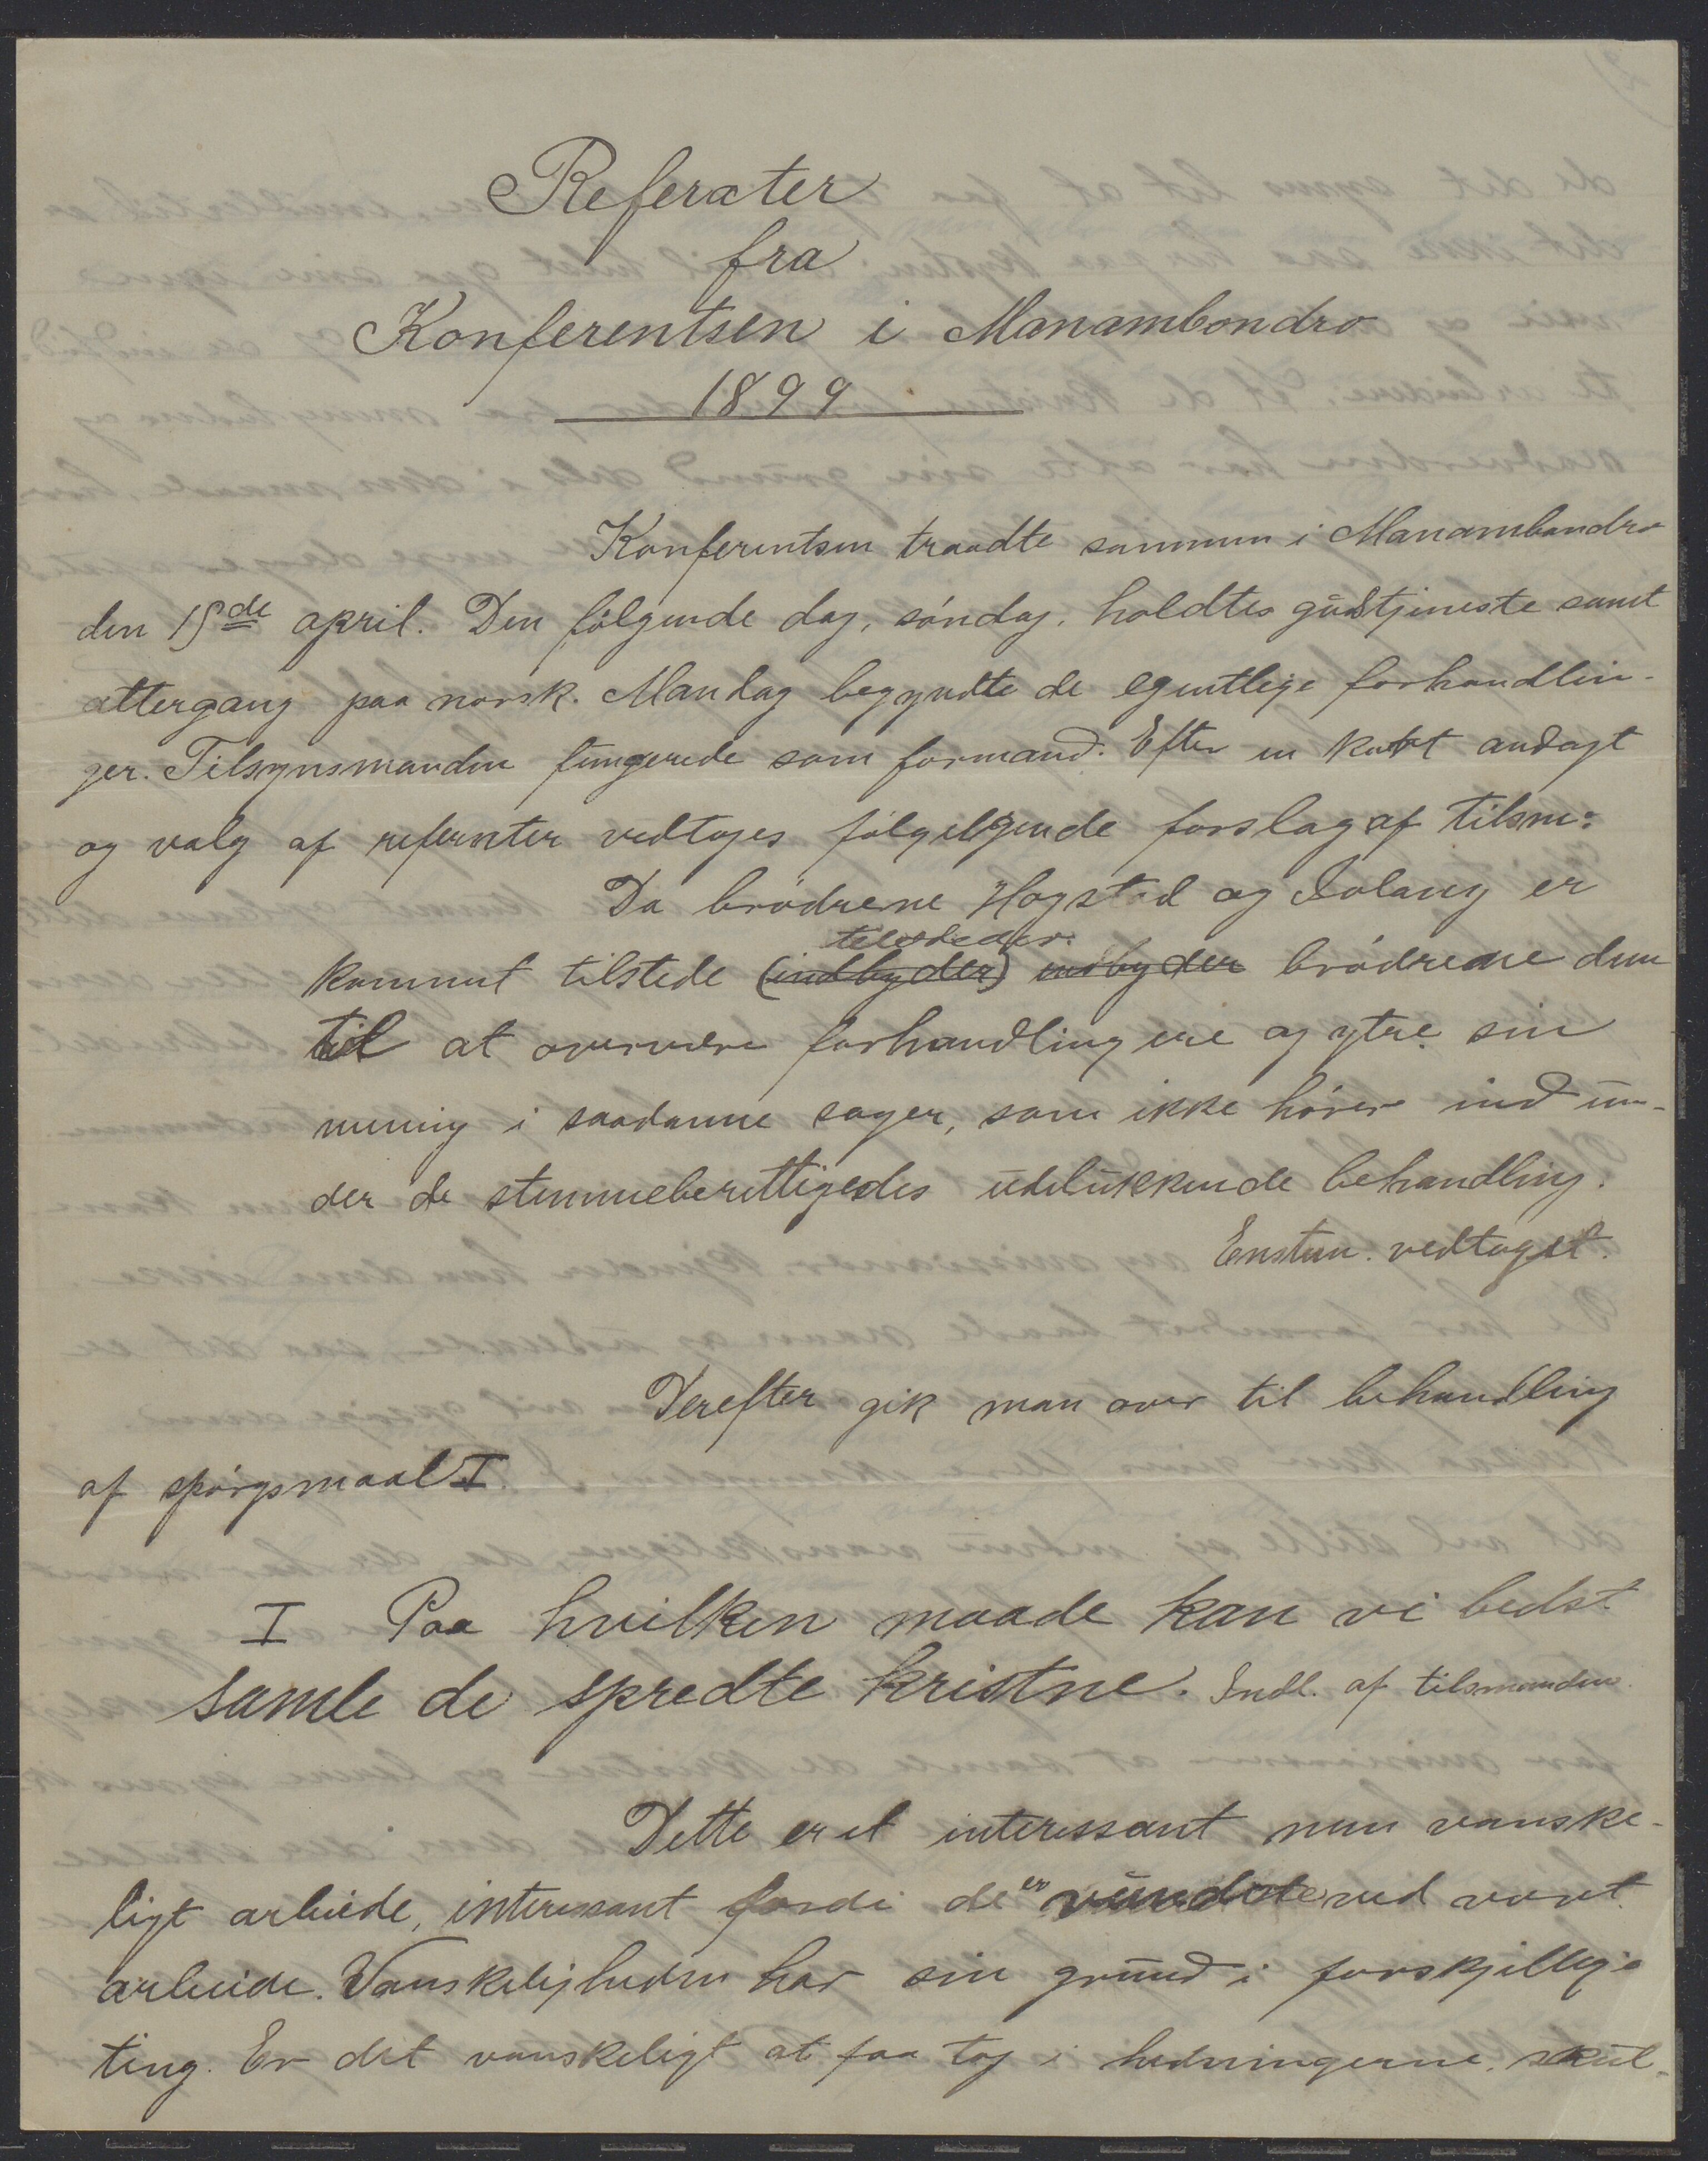 Referater
fra
Konferentsen i Manambondro
1899
Konferentsen traadte sammen i Manambondro
den 15de april. Den følgende dag, søndag, holdtes gudstjeneste samt
altergang paa norsk. Mandag begyndte de egentlige forhandlin-
ger. Tilsynsmanden fungerede som formand. Efter en kort andagt
og valg af referenter vedtoges følgelgende forslag af tilsm:
Da brødrene Hogstad og Solany er
tilsteder
kommet tilstede (indbyder) indbyder brødrene dem
til at overvære forhandlingerne og ytre sin
mening i saadanne sager, som ikke hører ind un-
der de stemmeberettigedes udelukkende behandling.
Enstem. vedtaget.
Derefter gik man over til behandling
af spørgsmaal I.
I Paa hvilken maade kan vi bedst
samle de spredte kristne. Indl. af tilsmanden.
Dette er et interessant men vanske-
ligt arbeide, interessant fordi de er vundete ved vort
arbeide. Vanskeligheden har sin grund i forskjellige
ting. Er det vanskeligt at faa tag i hedningerne, skul-